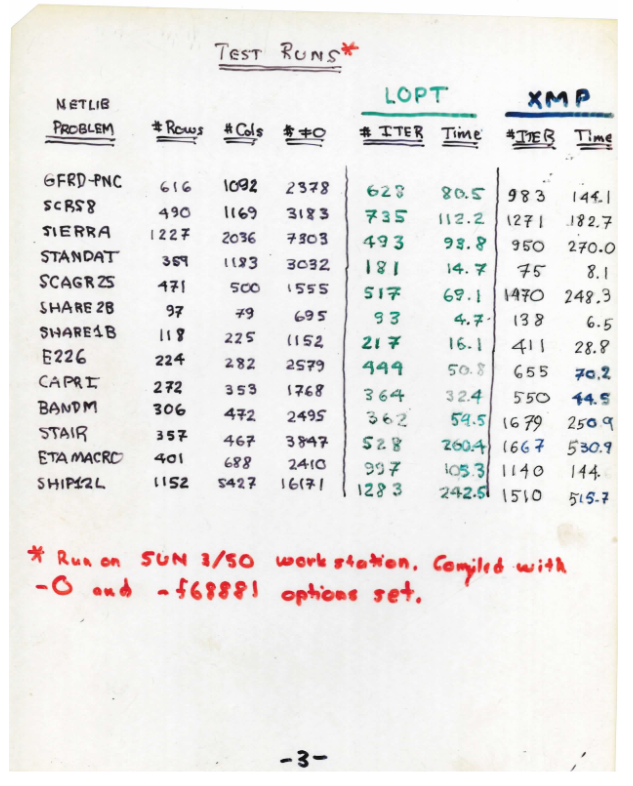 TEST RUNS*
LOPT XMP
NETLIB
PROBLEM #Rows #Cols #≠0 # ITER Time #ITER Time
GFRD-PNC 616 1092 2378 628 80.5 983 144.1
SCRS8 490 1169 3183 735 112.2 1271 182.7
SIERRA 1227 2036 7303 493 98.8 950 270.0
STANDAT 359 1183 3032 181 14.7 75 8.1
SCAGR25 471 500 1555 517 69.1 1470 248.3
SHARE2B 97 79 695 93 4.7 138 6.5
SHARE1B 118 225 1152 217 16.1 411 28.8
E226 224 282 2579 444 50.8 655 70.2
CAPRI 272 353 1768 364 32.4 550 44.5
BANDM 306 472 2495 362 54.5 1679 250.9
STAIR 357 467 3847 528 260.4 1667 530.9
ETAMACRO 401 688 2410 997 105.3 1140 144.
SHIP12L 1152 5427 16171 1283 242.5 1510 515.7
* Run on SUN 3/50 workstation. Compiled with
-O and -f68881 options set.
-3-